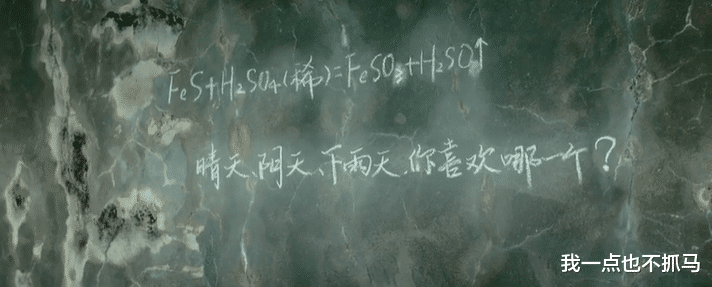 FeS+H₂SO₄(稀)=FeSO₃+H₂SO↑
晴天、阴天、下雨天,你喜欢哪一个?
我一点也不抓马